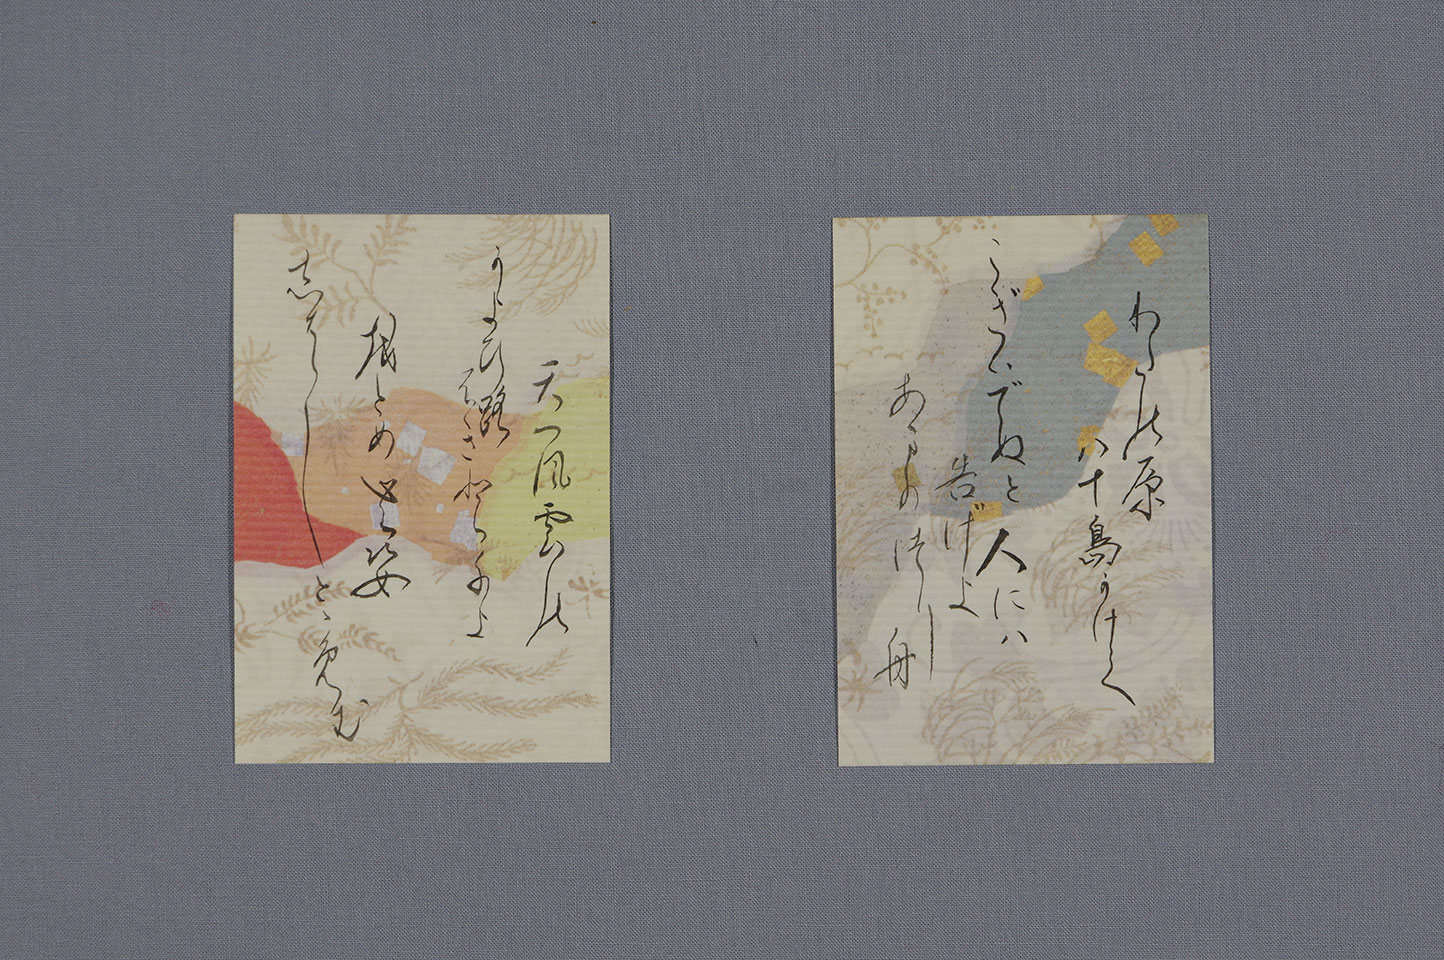 わたの原
八十島かけて
こぎいでぬと人には
告げよ
あまのつり舟
天つ風雲の
かよひ路
ふきとちよ
をとめの姿
しはしとゝめむ